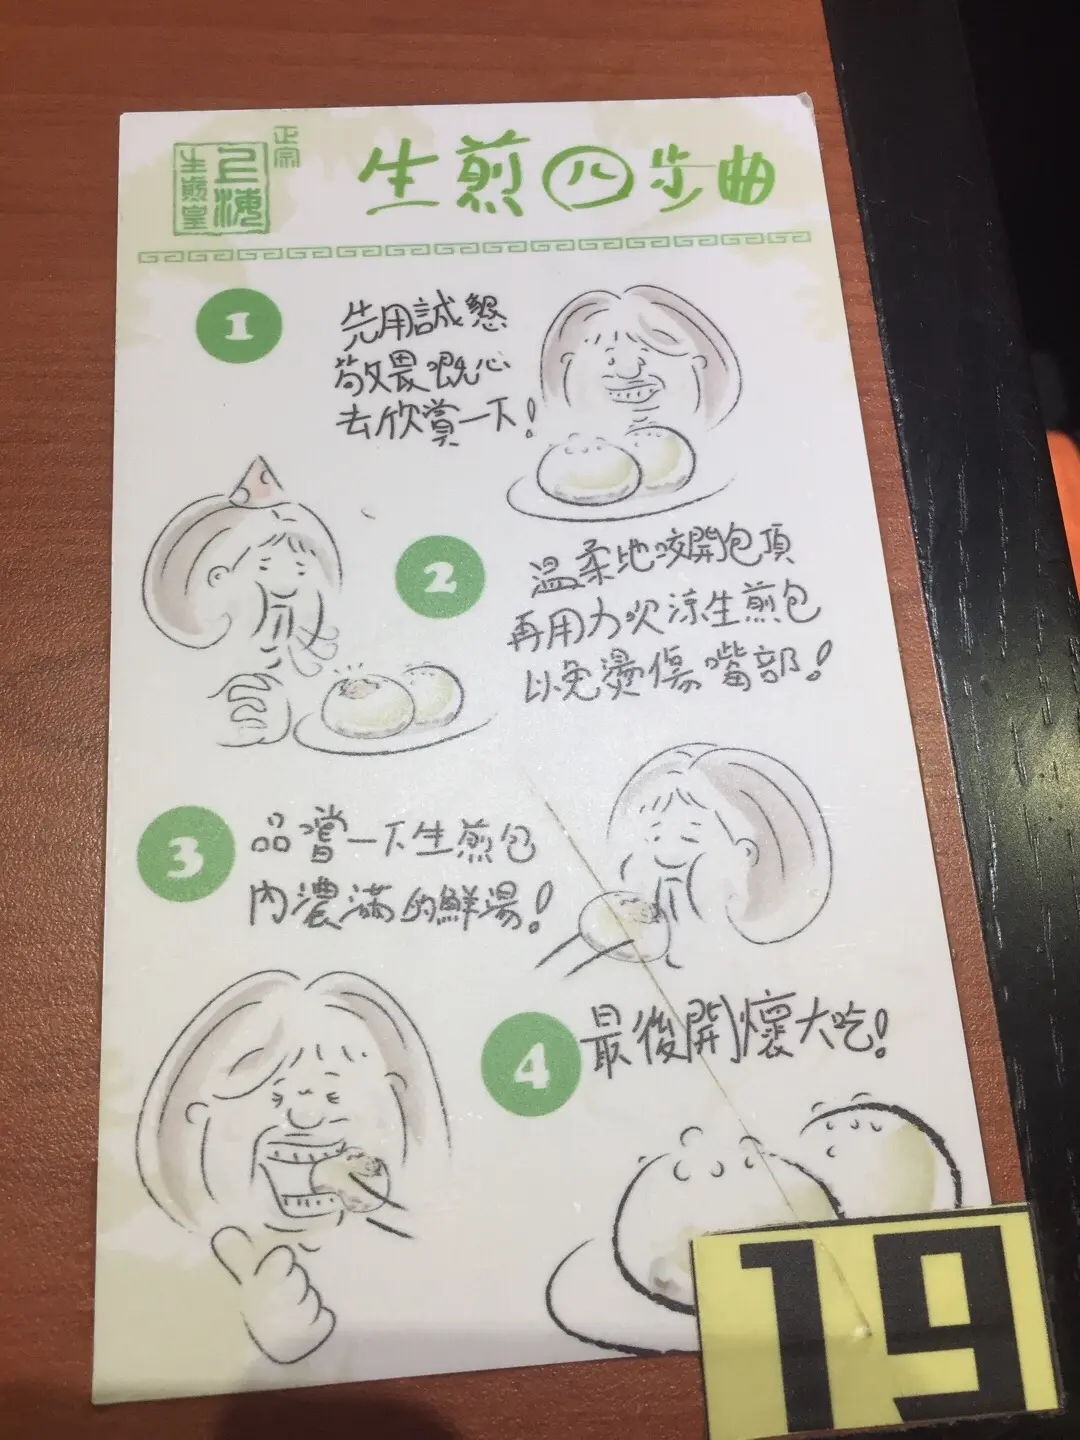 正宗
上海
生煎皇
生煎四步曲
1
先用誠懇
敬畏嘅心
去欣賞一下!
2
溫柔地咬開包頂
再用力吹涼生煎包
以免燙傷嘴部!
3
品嚐一下生煎包
內濃滿的鮮湯!
4
最後開懷大吃!
19